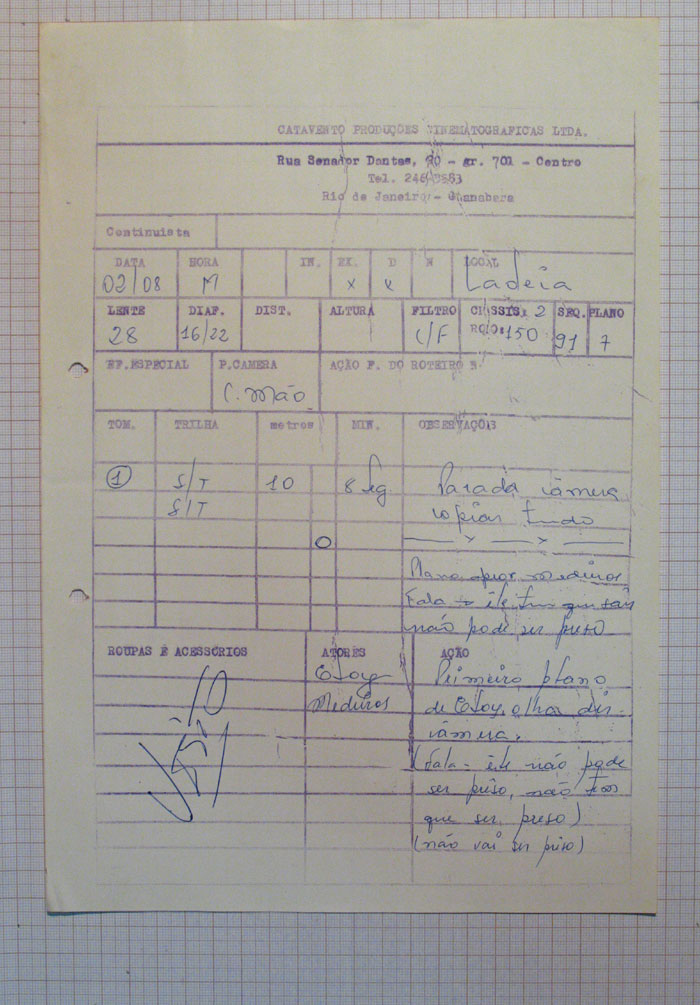 CATAVENTO PRODUÇÕES CINEMATOGRAFICAS LTDA.
Rua Senador Dantas, 20 - gr. 701 - Centro
Tel.
Rio de Janeiro - Guanabara
Continuista
DATA HORA IN. EX. D N LOCAL
02/08 M x x Ladeia
LENTE DIAF. DIST. ALTURA FILTRO CHASSIS: 2 SEQ. PLANO
28 16/22 C/F ROLO: 150 91 7
EF.ESPECIAL P.CAMERA AÇÃO F. DO ROTEIRO
C. Mão
TOM. TRILHA metros MIN. OBSERVAÇÕES
1 S/T 10 8 seg Parada câmera
S/T copiar tudo
Plano Medeiros
Fala ele que sair
não pode ser preso
ROUPAS E ACESSÓRIOS ATORES AÇÃO
Primeiro plano
Medeiros de olha
câmera.
(Fala - êle não pode
ser prêso, não tem
que ser preso)
(não vai ser prêso)